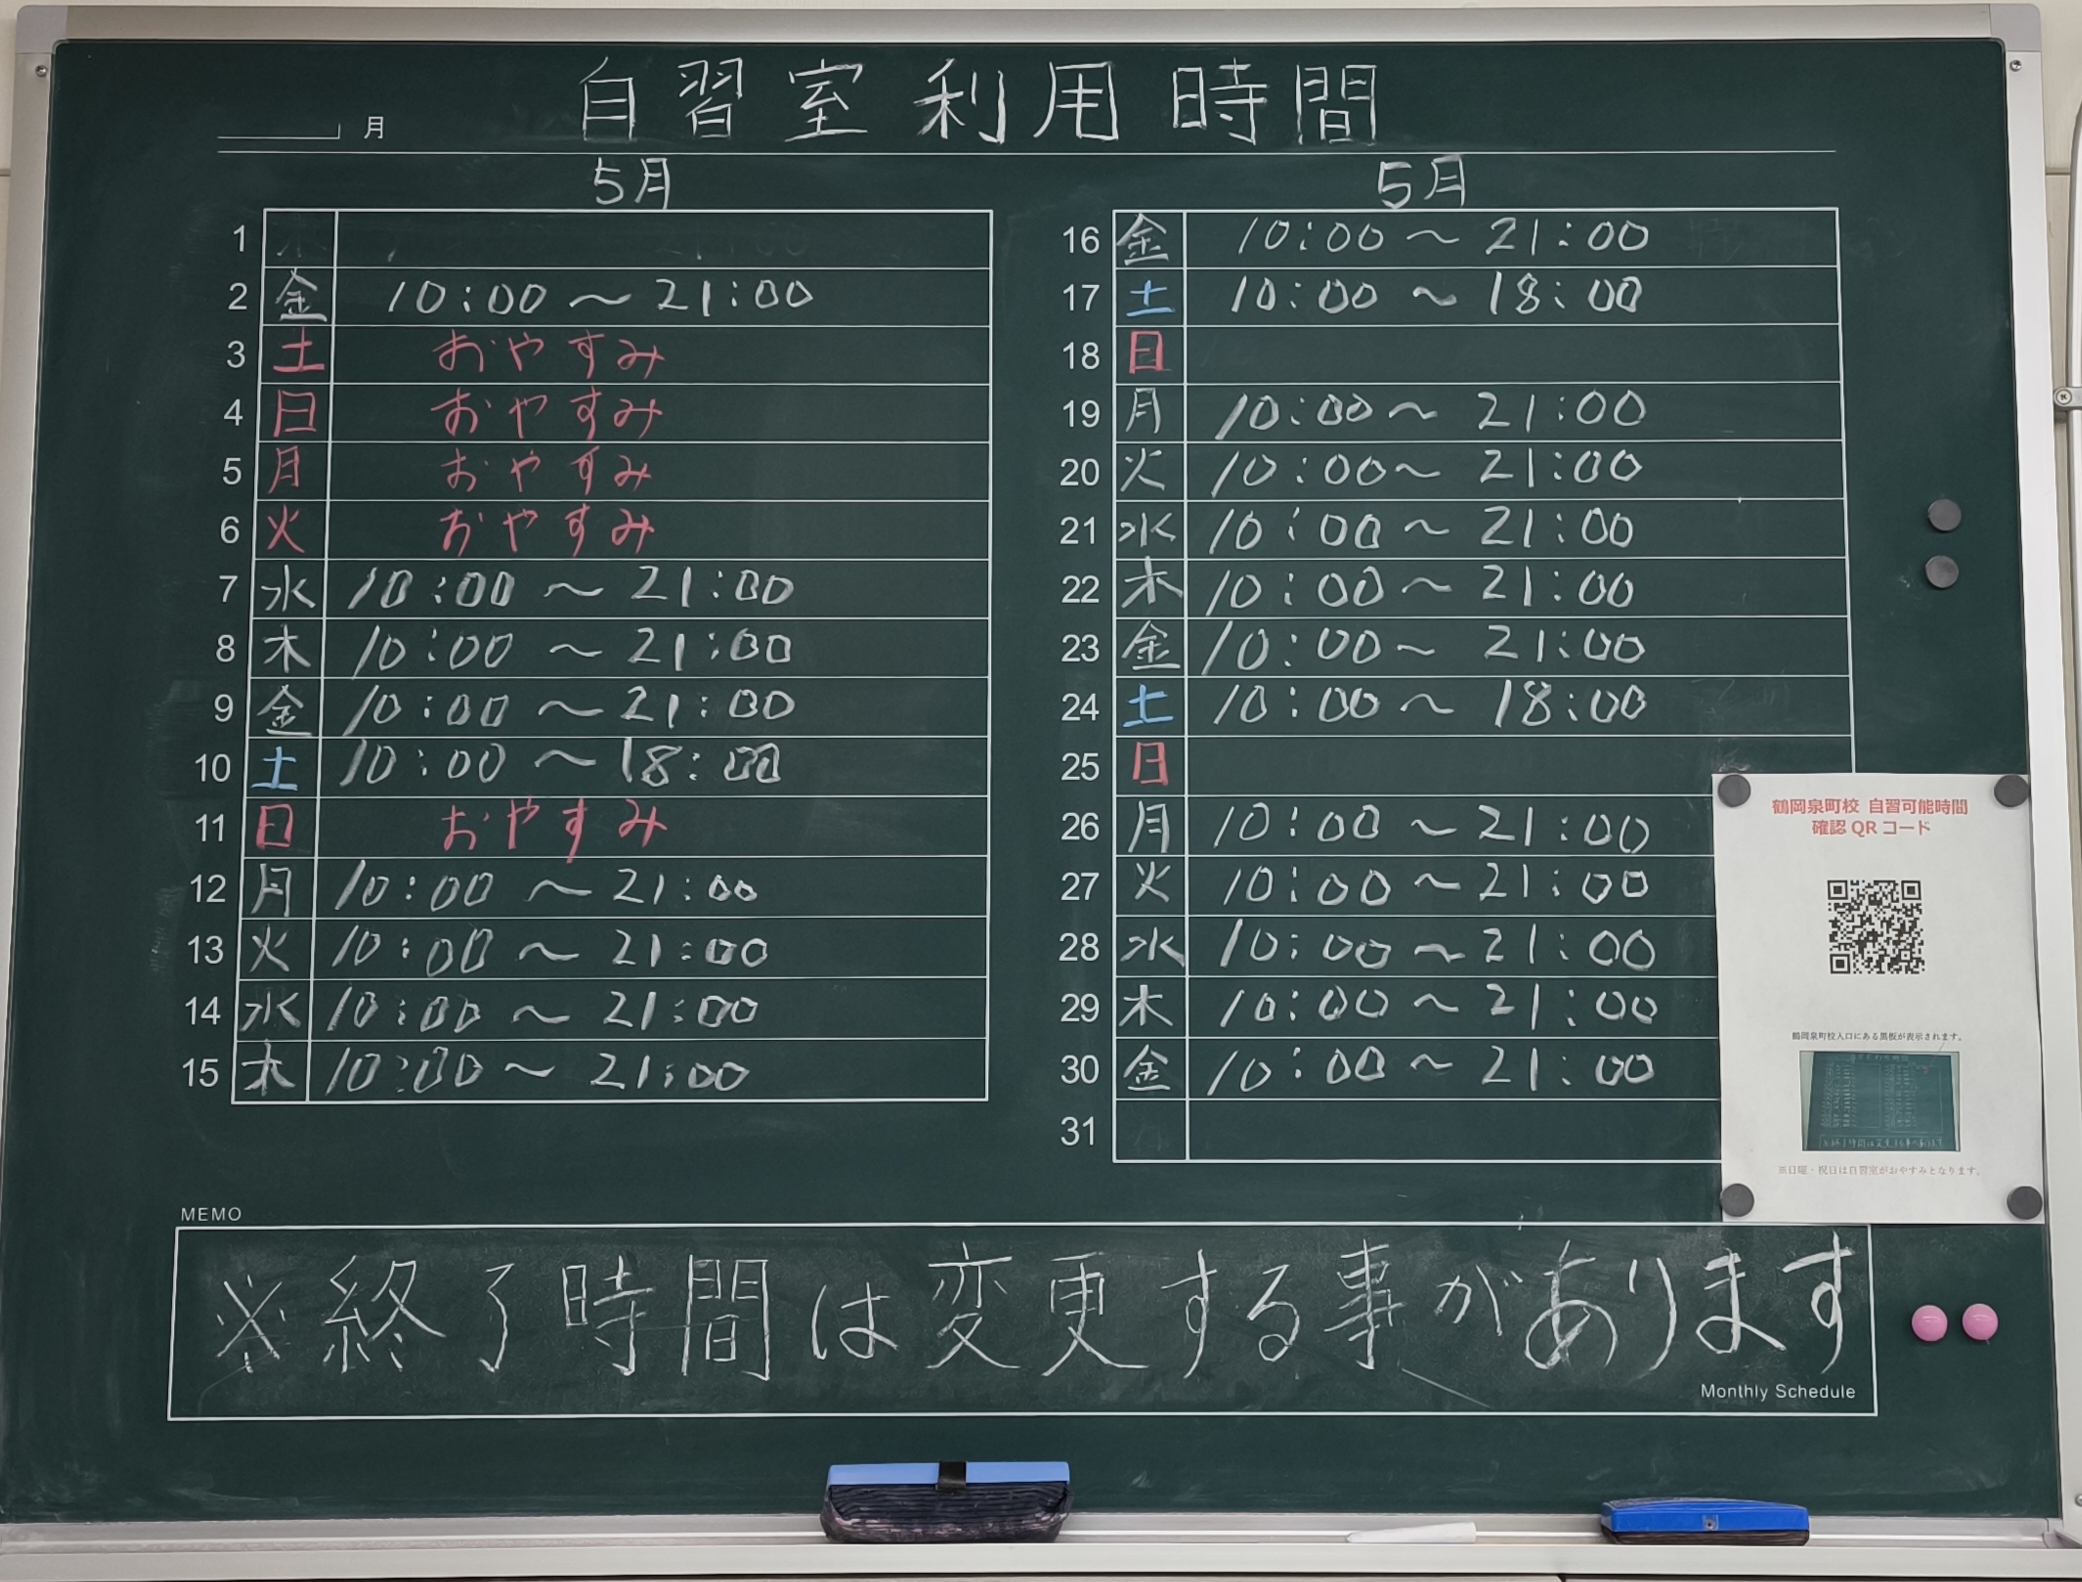 自習室利用時間
月
5月
1
2 金 10:00 〜 21:00
3 土 おやすみ
4 日 おやすみ
5 月 おやすみ
6 火 おやすみ
7 水 10:00 〜 21:00
8 木 10:00 〜 21:00
9 金 10:00 〜 21:00
10 土 10:00 〜 18:00
11 日 おやすみ
12 月 10:00 〜 21:00
13 火 10:00 〜 21:00
14 水 10:00 〜 21:00
15 木 10:00 〜 21:00
5月
16 金 10:00 〜 21:00
17 土 10:00 〜 18:00
18 日
19 月 10:00 〜 21:00
20 火 10:00 〜 21:00
21 水 10:00 〜 21:00
22 木 10:00 〜 21:00
23 金 10:00 〜 21:00
24 土 10:00 〜 18:00
25 日
26 月 10:00 〜 21:00
27 火 10:00 〜 21:00
28 水 10:00 〜 21:00
29 木 10:00 〜 21:00
30 金 10:00 〜 21:00
31
鶴岡泉町校 自習可能時間
確認 QR コード
鶴岡泉町校入口にある黒板が表示されます。
※日曜・祝日は自習室がおやすみとなります。
MEMO
※終了時間は変更する事があります
Monthly Schedule